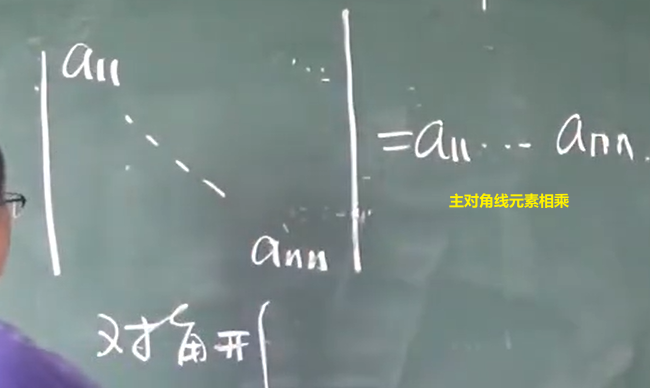 | a₁₁ ⋱ aₙₙ | = a₁₁ ⋯ aₙₙ
主对角线元素相乘
对角开